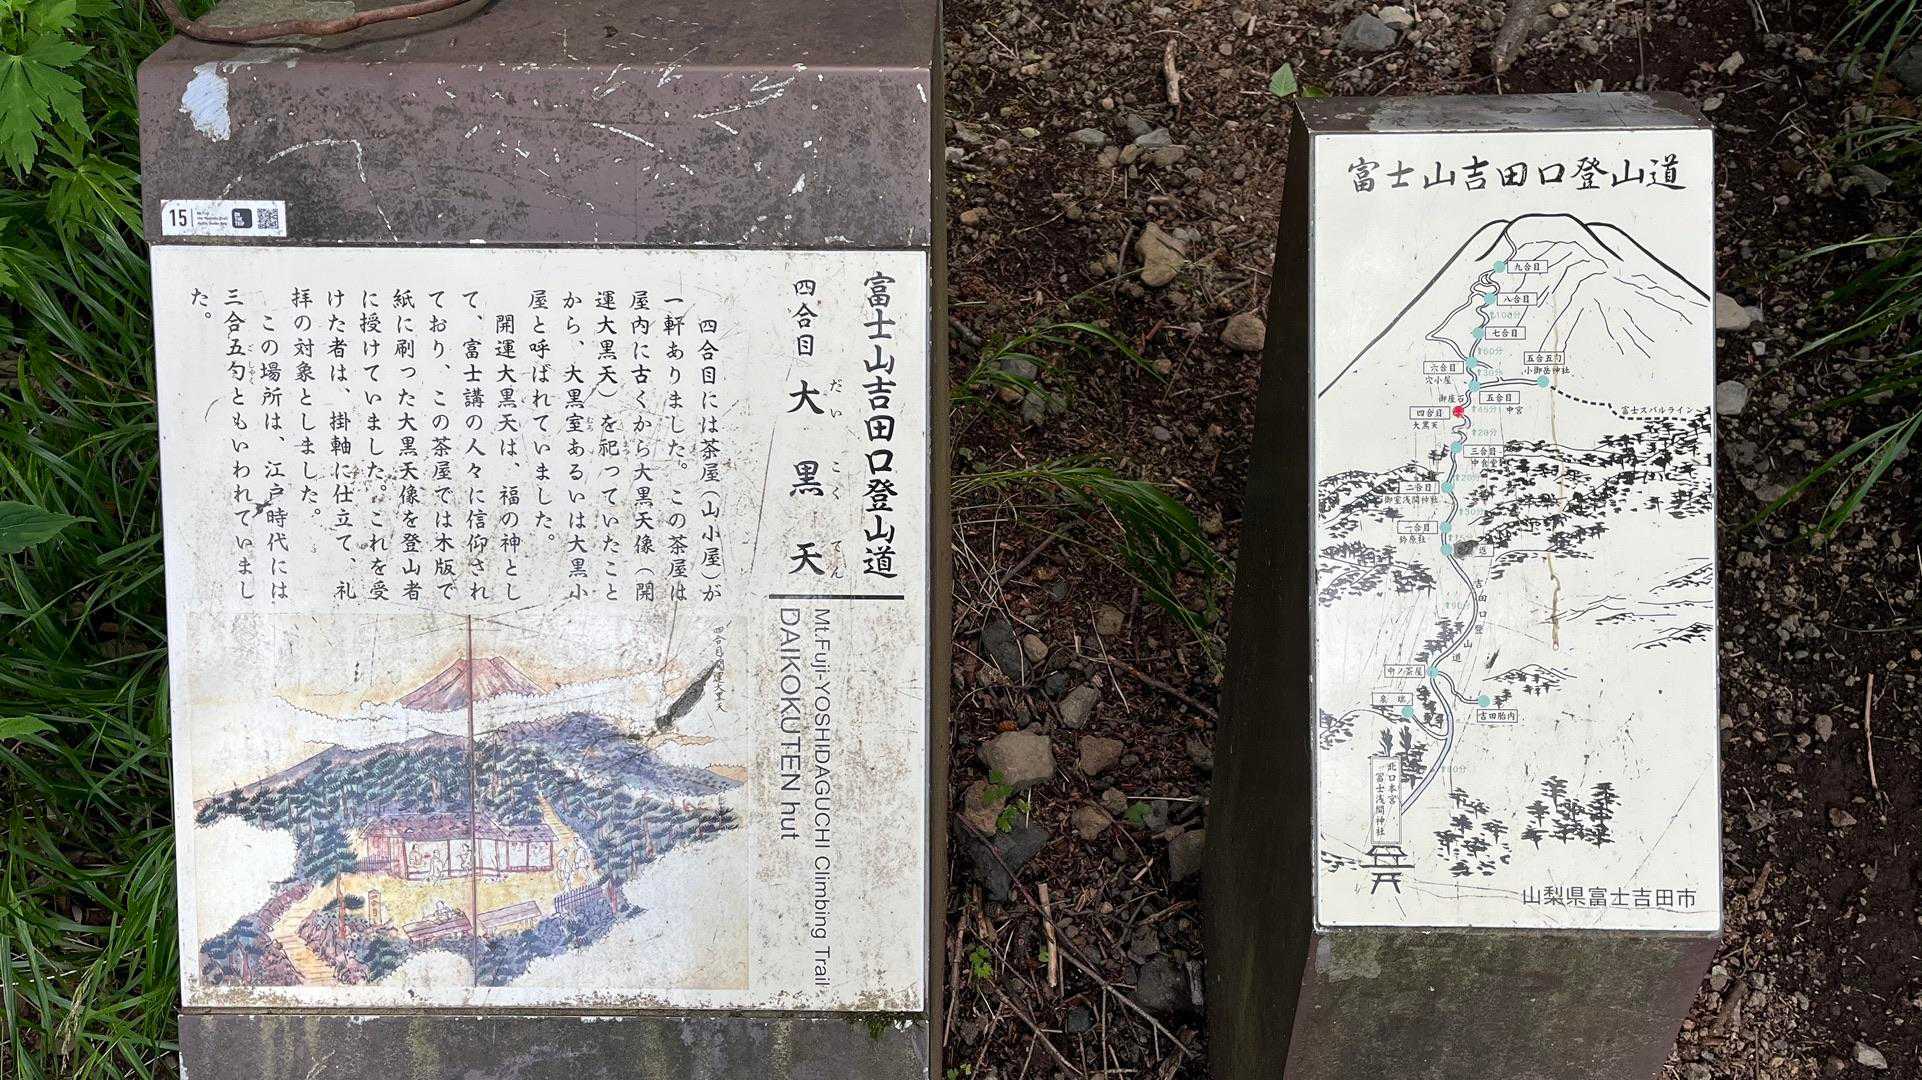 15
富士山吉田口登山道
四合目 大黒天
だいこくてん
Mt.Fuji-YOSHIDAGUCHI Climbing Trail
DAIKOKUTEN hut
四合目には茶屋(山小屋)が
一軒ありました。この茶屋は
屋内に古くから大黒天像(開
運大黒天)を祀っていたこと
から、大黒室あるいは大黒小
屋と呼ばれていました。
開運大黒天は、福の神とし
て、富士講の人々に信仰され
ており、この茶屋では木版で
紙に刷った大黒天像を登山者
に授けていました。これを受
けた者は、掛軸に仕立て、礼
拝の対象としました。
この場所は、江戸時代には
三合五勺ともいわれていまし
た。
四合目開運大黒天
富士山吉田口登山道
九合目
八合目
⬆100分
七合目
⬆60分
五合五勺
小御岳神社
六合目
穴小屋
⬆30分
五合目
中宮
御座石
四合目
大黒天
⬆45分
富士スバルライン
⬆20分
三合目
中食堂
⬆20分
二合目
御室浅間神社
⬆30分
一合目
鈴原社
吉田口登山道
⬆90分
中ノ茶屋
泉瑞
吉田胎内
⬆80分
北口本宮
冨士浅間神社
山梨県富士吉田市